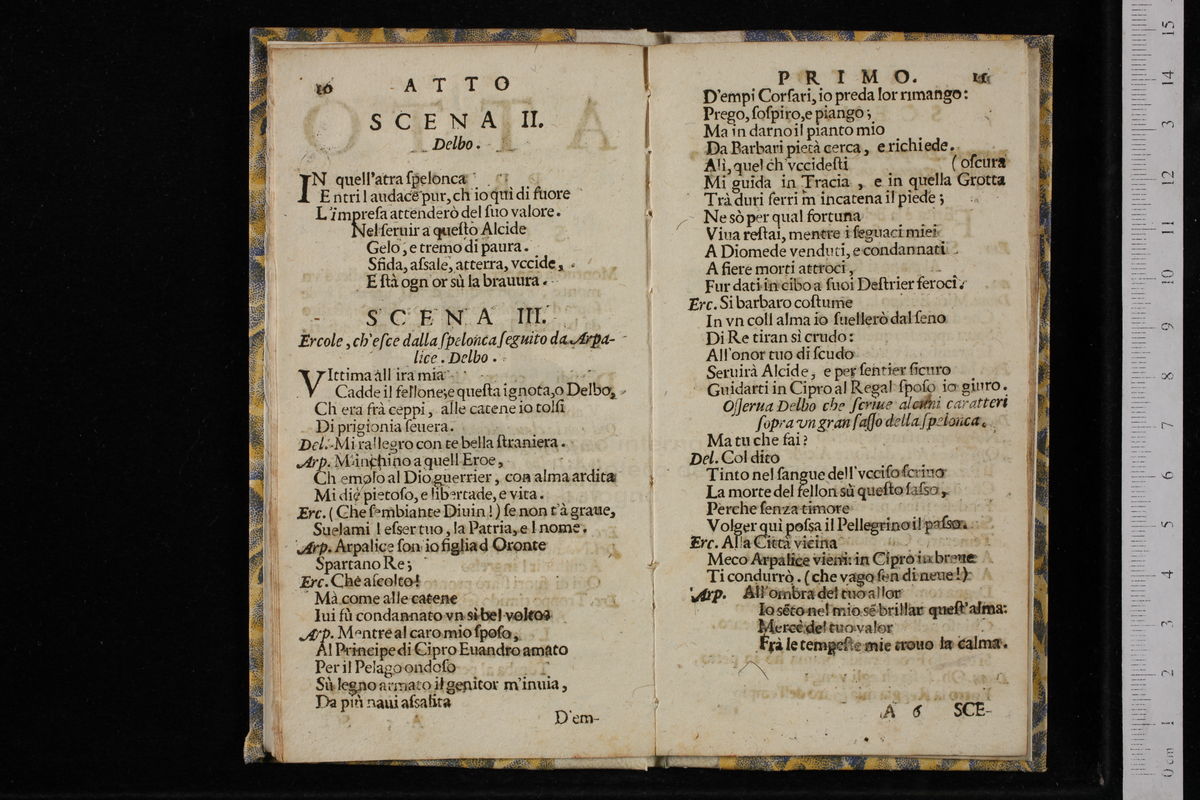 10 ATTO
SCENA II.
Delbo.
IN quell'atra ſpelonca
Entri l audace pur, ch io quì di fuore
L'impreſa attenderò del ſuo valore.
Nel ſeruir a queſto Alcide
Gelo, e tremo di paura.
Sfida, aſsale, atterra, vccide,
E ſtà ogn or sù la brauura.
SCENA III.
Ercole, ch'eſce dalla ſpelonca ſeguito da Arpa-
lice. Delbo.
VIttima all ira mia
Cadde il fellone; e queſta ignota, o Delbo,
Ch era frà ceppi, alle catene io tolſi
Di prigionia ſeuera.
Del. Mi rallegro con te bella ſtraniera.
Arp. M'inchino a quell Eroe,
Ch emolo al Dio guerrier, con alma ardita
Mi diè pietoſo, e libertade, e vita.
Erc. (Che ſembiante Diuin!) ſe non t'à graue,
Suelami l eſser tuo, la Patria, e l nome.
Arp. Arpalice ſon io figlia d Oronte
Spartano Re;
Erc. Chè aſcolto!
Mà come alle catene
Iui fù condannato vn sì bel volto?
Arp. Mentre al caro mio ſpoſo,
Al Principe di Cipro Euandro amato
Per il Pelago ondoſo
Sù legno armato il genitor m'inuia,
Da più naui aſsalita
D'em-
PRIMO. 11
D'empi Corſari, io preda lor rimango:
Prego, ſoſpiro, e piango;
Ma in darno il pianto mio
Da Barbari pietà cerca, e richiede.
Alì, quel ch'vccideſti (oſcura
Mi guida in Tracia, e in quella Grotta
Trà duri ferri m incatena il piede;
Ne sò per qual fortuna
Viua reſtai, mentre i ſeguaci miei
A Diomede venduti, e condannati
A fiere morti attroci,
Fur dati in cibo a ſuoi Deſtrier feroci.
Erc. Si barbaro coſtume
In vn coll alma io ſuellerò dal ſeno
Di Re tiran sì crudo:
All'onor tuo di ſcudo
Seruirà Alcide, e per ſentier ſicuro
Guidarti in Cipro al Regal ſpoſo io giuro.
Oſſerua Delbo che ſcriue alcuni caratteri
ſopra vn gran ſaſſo della ſpelonca.
Ma tu che fai?
Del. Col dito
Tinto nel ſangue dell'vcciſo ſcriuo
La morte del fellon sù queſto ſaſso,
Perche ſenza timore
Volger quì poſsa il Pellegrino il paſso.
Erc. Alla Città vicina
Meco Arpalice vieni: in Cipro in breue
Ti condurrò. (che vago ſen di neue!)
Arp. All'ombra del tuo allor
Io sẽto nel mio sẽ brillar queſt'alma:
Mercè del tuo valor
Frà le tempeſte mie trouo la calma.
A 6 SCE-